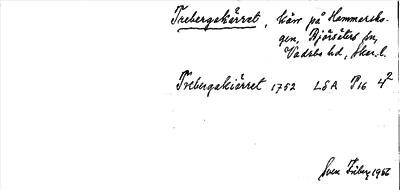 Trebergakärret, kärr på Hammarsko-
gen, Björsäters sn,
Vadsbo hd, Skar. l.
Trebergakiärret 1752 LSA P16 4²
Sven Friberg 1956